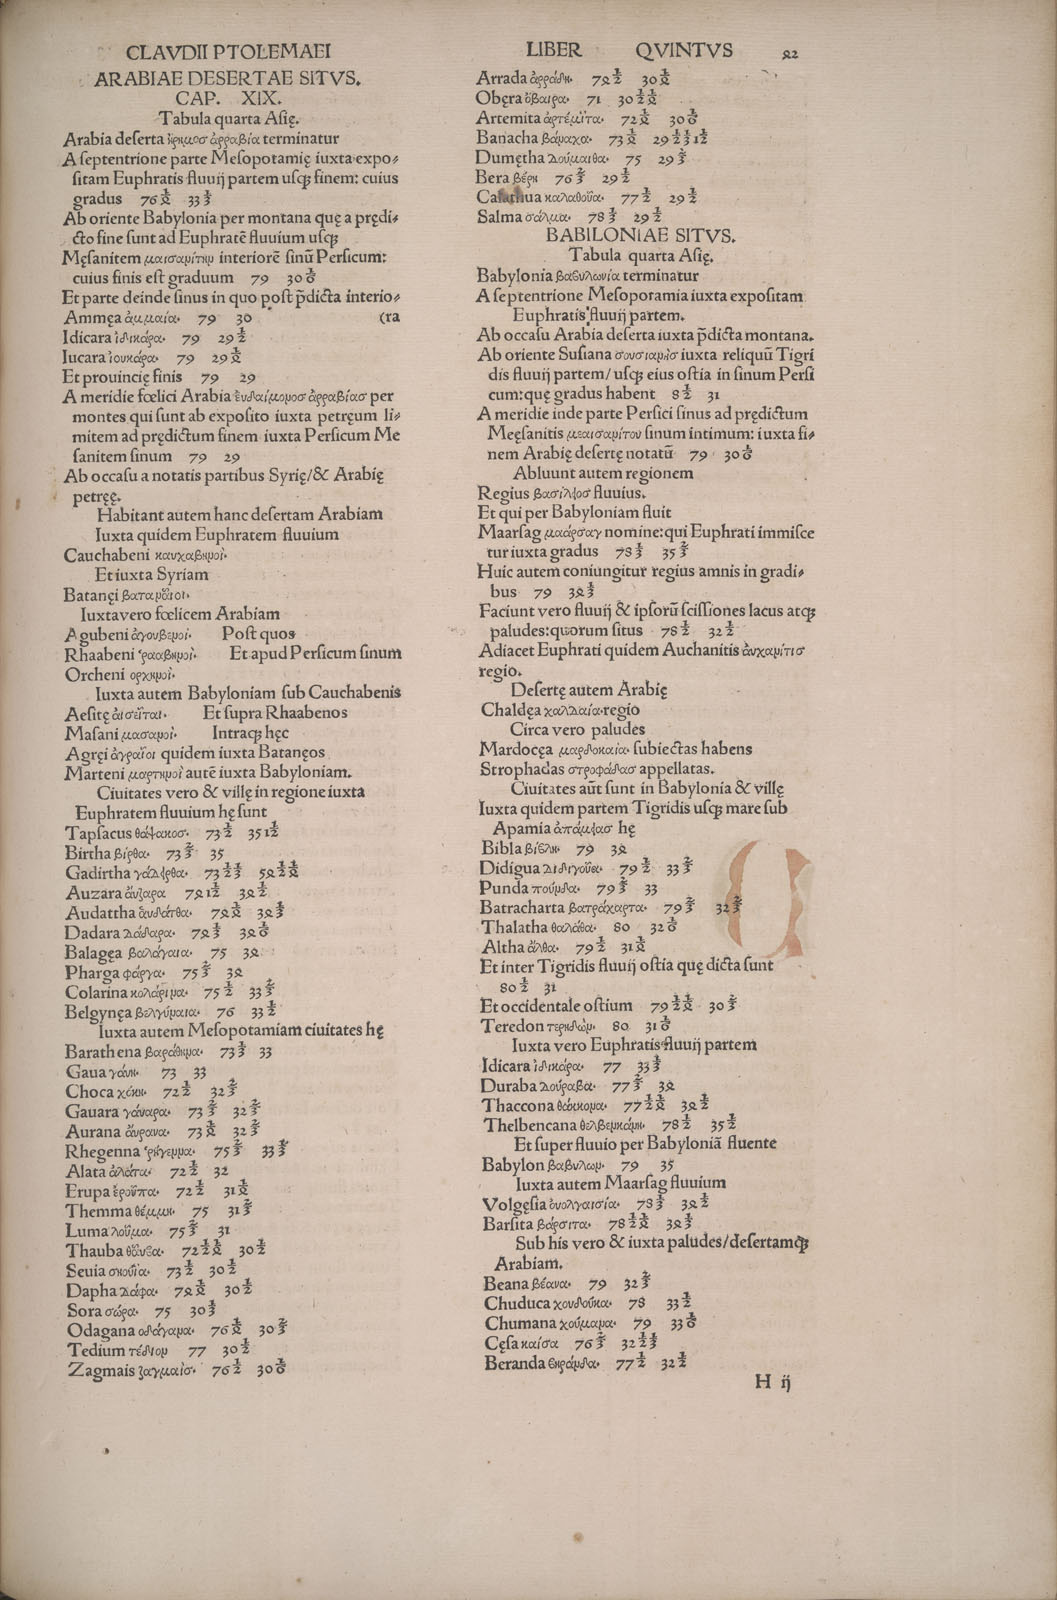 CLAVDII PTOLEMAEI
LIBER QVINTVS
ARABIAE DESERTAE SITVS.
CAP. XIX.
Tabula quarta Asię.
Arabia deserta terminatur
A septentrione parte Mesopotamię iuxta expo⸗
sitam Euphratis fluuij partem usqꝫ finem: cuius
gradus 76 33
Ab oriente Babylonia per montana quę a prędi⸗
cto fine sunt ad Euphratē fluuium usqꝫ
Męsanitem interiorē sinū Persicum:
cuius finis est graduum 79 30
Et parte deinde sinus in quo post p̄dicta interio⸗
Ammęa ἀμμαία· 79 30 (ra
Idicara ἰδικάρα· 79 29 ½
Iucara ἰουκάρα· 79 29
Et prouincię finis 79 29
A meridie fœlici Arabia per
montes qui sunt ab exposito iuxta petręum li⸗
mitem ad prędictum finem iuxta Persicum Me
sanitem sinum 79 29
Ab occasu a notatis partibus Syrię/& Arabię
petręę.
Habitant autem hanc desertam Arabiam
Iuxta quidem Euphratem fluuium
Cauchabeni καυχαβηνοί·
Et iuxta Syriam
Batanęi
Iuxta vero fœlicem Arabiam
Agubeni ἀγουβενοί· Post quos
Rhaabeni ῥααβηνοί· Et apud Persicum sinum
Orcheni ορχηνοί·
Iuxta autem Babyloniam sub Cauchabenis
Aesitę Et supra Rhaabenos
Masani μασανοί· Intraqꝫ hęc
Agręi ἀγραῖοι quidem iuxta Batanęos
Marteni μαρτηνοί autē iuxta Babyloniam.
Ciuitates vero & villę in regione iuxta
Euphratem fluuium hę sunt
Tapsacus θάψακος· 73 ½ 35
Birtha βίρθα· 73 35
Gadirtha 73
Auzara ἄυζαρα
Audattha
Dadara
Balagęa βαλάγαια· 75 32
Pharga φάργα· 75 32
Colarina κολάρινα· 75 ½ 33
Belgynęa βελγύναια· 76 33 ½
Iuxta autem Mesopotamiam ciuitates hę
Barathena βαράθηνα· 73 33
Gaua γάυη· 73 33
Choca χόκη· 72 ½ 32
Gauara γάυαρα· 73 32
Aurana ἄυρανα· 73 32
Rhegenna ῥήγεννα· 75 33
Alata ἀλάτα· 72 ½ 32
Erupa ἐροῦπα· 72 ½ 31
Themma θέμμη· 75 31
Luma λοῦμα· 75 31
Thauba 72 30 ½
Seuia 73 30 ½
Dapha δάφα· 30 ½
Sora σώρα· 75 30
Odagana οδάγανα· 76 30
Tedium τέδιον 77 30 ½
Zagmais ζαγμαίς· 76 ½ 30
Arrada
Obęra ὄβαιρα· 71 30
Artemita ἀρτέμιτα· 72 30
Banacha βάναχα· 73 29
Dumętha δούμαιθα· 75 29
Bera βέρη 76 29 ½
Calathua καλαθοῦα· 77 ½ 29 ½
Salma σάλμα· 78 29 ½
BABILONIAE SITVS.
Tabula quarta Asię.
Babylonia βαβυλωνία terminatur
A septentrione Mesoporamia iuxta expositam
Euphratis fluuij partem.
Ab occasu Arabia deserta iuxta p̄dicta montana.
Ab oriente Susiana iuxta reliquū Tigri
dis fluuij partem/usqꝫ eius ostia in sinum Persi
cum: quę gradus habent 8 ½ 31
A meridie inde parte Persici sinus ad prędictum
Meęsanitis sinum intimum: iuxta fi⸗
nem Arabię desertę notatū 79 30
Abluunt autem regionem
Regius fluuius.
Et qui per Babyloniam fluit
Maarsag nomine: qui Euphrati immisce
tur iuxta gradus 78 35
Huic autem coniungitur regius amnis in gradi⸗
bus 79
Faciunt vero fluuij & ipsorū scissiones lacus atqꝫ
paludes: quorum situs 78 ½ 32 ½
Adiacet Euphrati quidem Auchanitis ἀυχανίτις
regio.
Desertę autem Arabię
Chaldęa χαλδαία· regio
Circa vero paludes
Mardocęa μαρδοκαία· subiectas habens
Strophadas στροφάδας appellatas.
Ciuitates aūt sunt in Babylonia & villę
Iuxta quidem partem Tigridis usqꝫ mare sub
Apamia hę
Bibla βίβλη· 79 32
Didigua διδιγοῦα· 79 ½ 33
Punda πούνδα· 79 33
Batracharta βατράχαρτα· 79 32
Thalatha θαλάθα· 80 32
Altha ἄλθα· 79 ½ 31
Et inter Tigridis fluuij ostia quę dicta sunt
80 ½ 31
Et occidentale ostium 79 30
Teredon τερηδών· 80 31
Iuxta vero Euphratis fluuij partem
Idicara ἰδικάρα· 77 33
Duraba δούραβα· 77 32
Thaccona θάκκονα· 77
Thelbencana θελβενκάνη· 78 ½ 35 ½
Et super fluuio per Babyloniā fluente
Babylon βαβυλων· 79 35
Iuxta autem Maarsag fluuium
Volgęsia ὀυολγαισία· 78
Barsita βάρσιτα· 78
Sub his vero & iuxta paludes/desertamqꝫ
Arabiam.
Beana βέανα· 79 32
Chuduca χουδούκα· 78 33 ½
Chumana χούμανα· 79 33
Cęsa καίσα 76 32
Beranda 77 ½ 32 ½
H ij